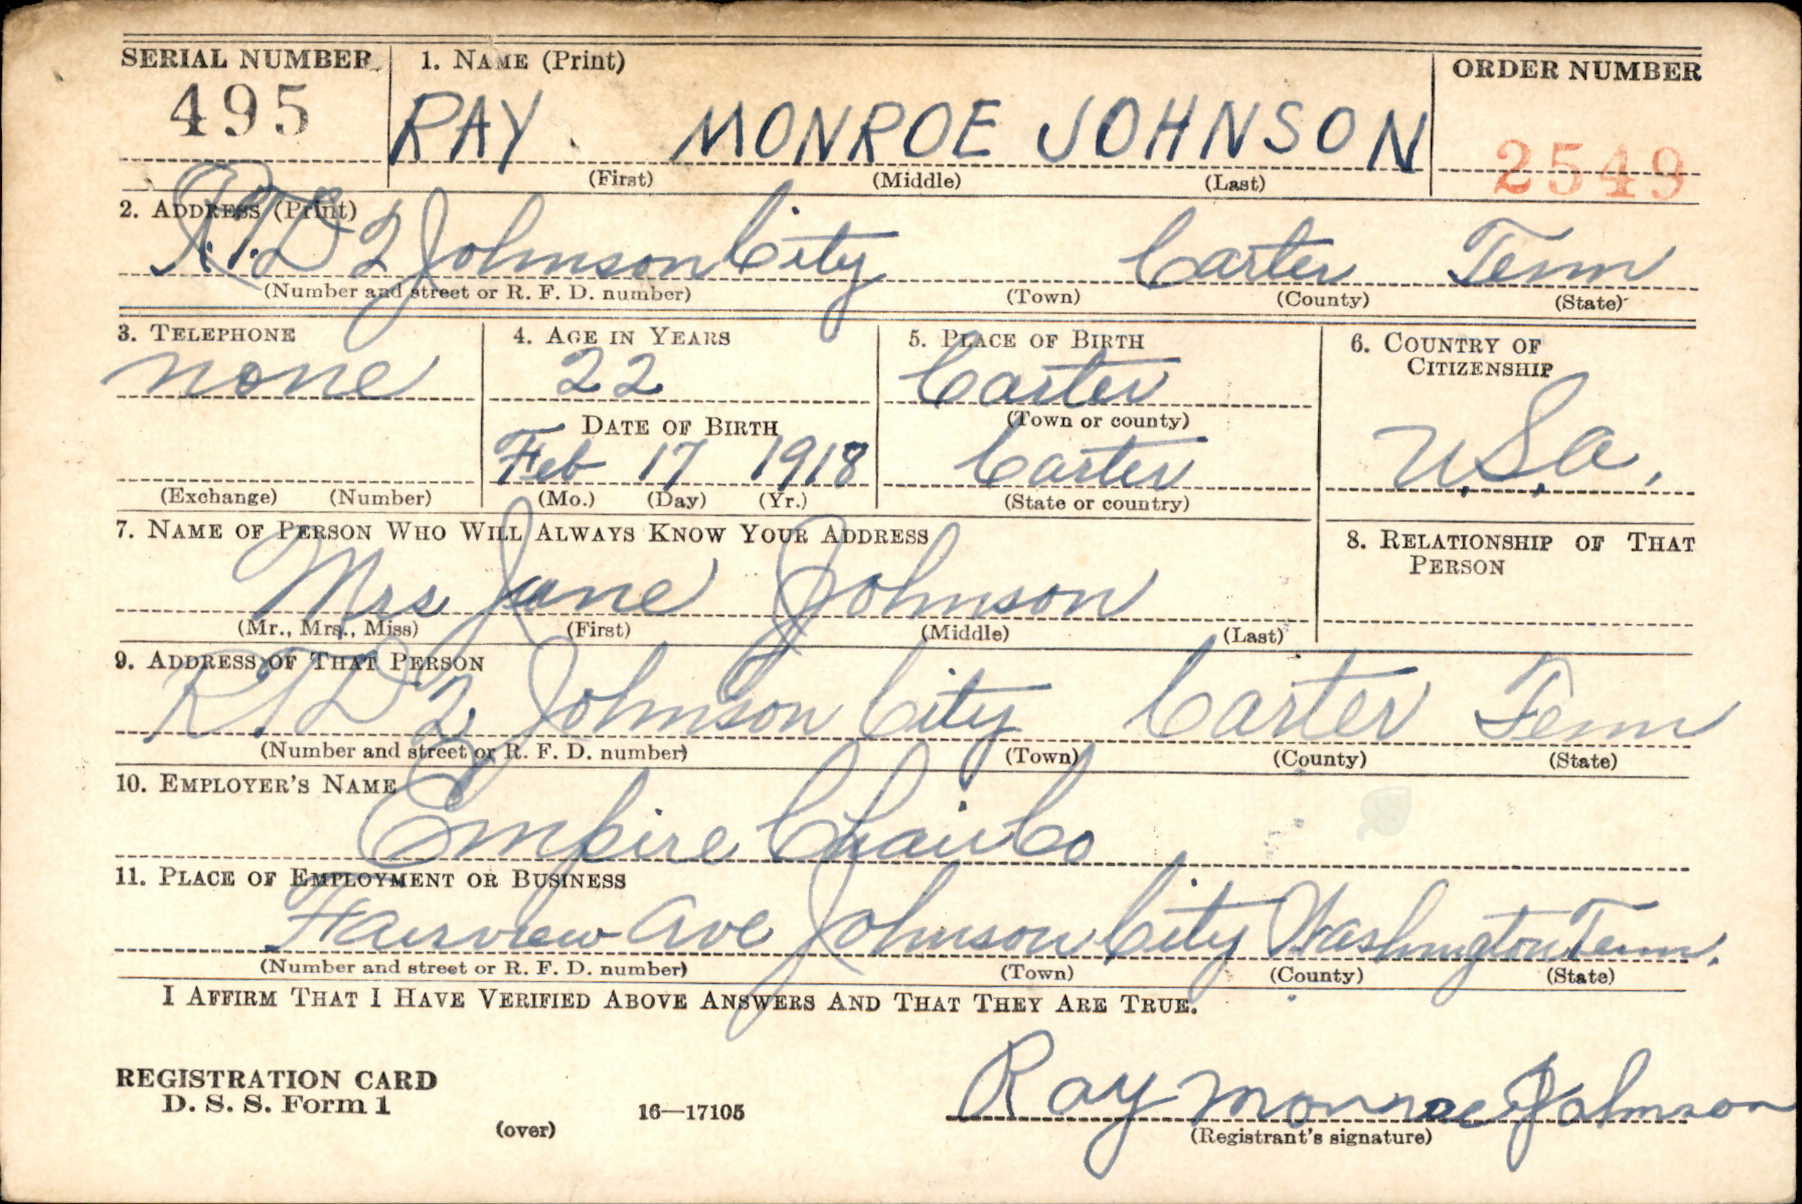 SERIAL NUMBER 1. NAME (Print) ORDER NUMBER
495 RAY MONROE JOHNSON 2549
(First) (Middle) (Last)
2. ADDRESS (Print)
R.F.D 2 Johnson City Carter Tenn
(Number and street or R. F. D. number) (Town) (County) (State)
3. TELEPHONE 4. AGE IN YEARS 5. PLACE OF BIRTH 6. COUNTRY OF CITIZENSHIP
none 22 Carter
DATE OF BIRTH (Town or county)
Feb 17 1918 Carter U.S.a.
(Exchange) (Number) (Mo.) (Day) (Yr.) (State or country)
7. NAME OF PERSON WHO WILL ALWAYS KNOW YOUR ADDRESS 8. RELATIONSHIP OF THAT PERSON
Mrs Jane Johnson
(Mr., Mrs., Miss) (First) (Middle) (Last)
9. ADDRESS OF THAT PERSON
R.F.D 2 Johnson City Carter Tenn
(Number and street or R. F. D. number) (Town) (County) (State)
10. EMPLOYER'S NAME
Empire Chair Co
11. PLACE OF EMPLOYMENT OR BUSINESS
Fairview ave Johnson City Washington Tenn.
(Number and street or R. F. D. number) (Town) (County) (State)
I AFFIRM THAT I HAVE VERIFIED ABOVE ANSWERS AND THAT THEY ARE TRUE.
REGISTRATION CARD
D. S. S. Form 1 16—17105 Ray Monroe Johnson
(over) (Registrant's signature)